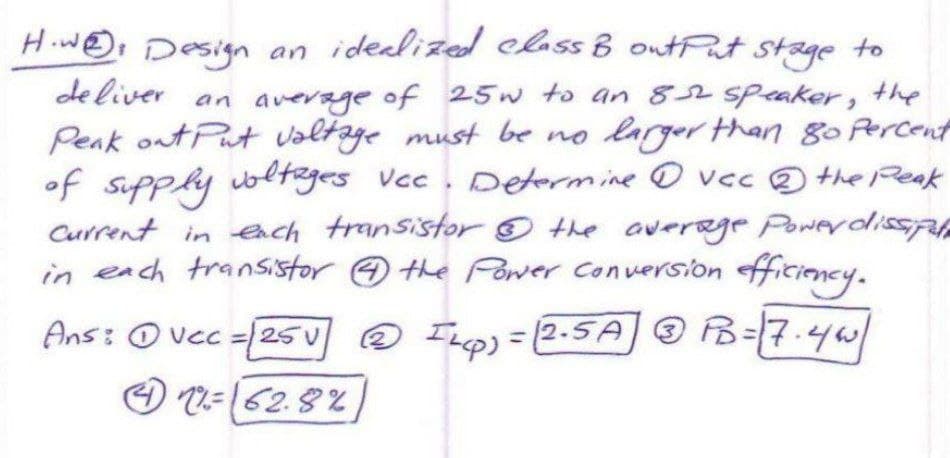 H.W②: Design an idealized class B outPut stage to
deliver an average of 25w to an 8Ω speaker, the
Peak outPut voltage must be no larger than 80 Percent
of supply voltages Vcc. Determine ① Vcc ② the Peak
current in each transistor ③ the average Power
in each transistor ④ the Power conversion efficiency.
Ans: ① Vcc = 25V ② IL(P) = 2.5A ③ PD = 7.4w
④ η% = 62.8%